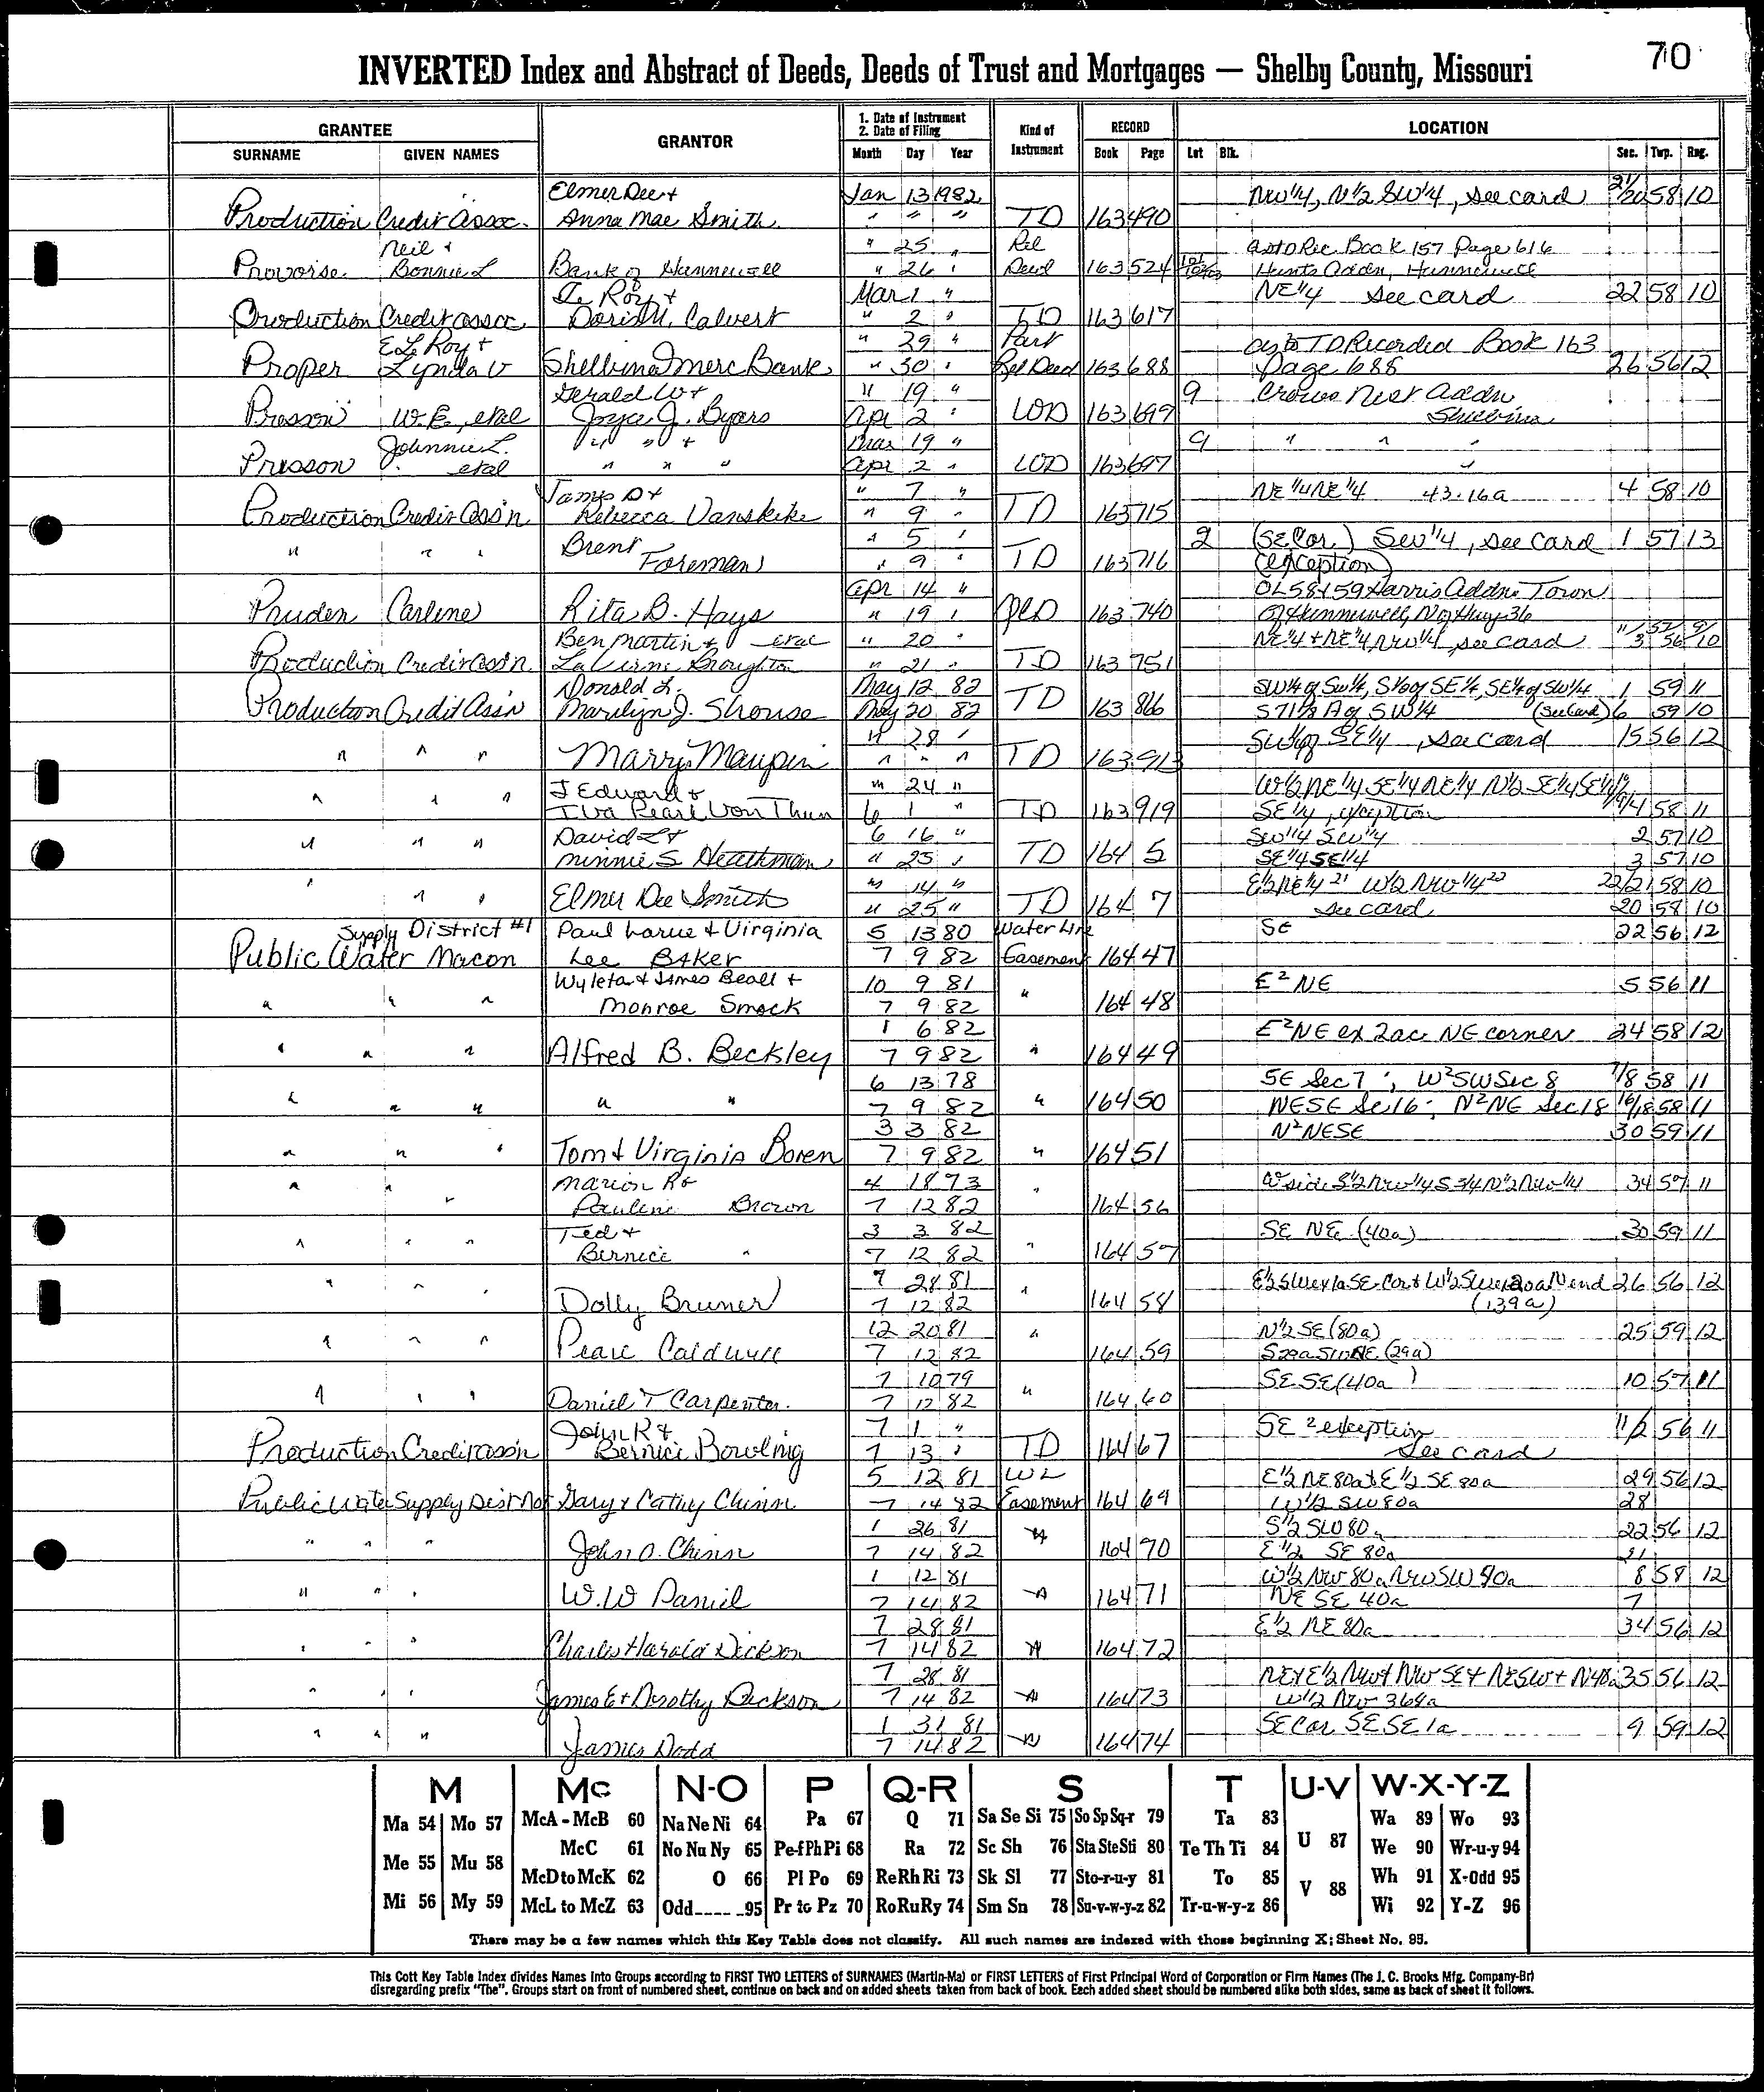 70
INVERTED Index and Abstract of Deeds, Deeds of Trust and Mortgages — Shelby County, Missouri
GRANTEE
SURNAME GIVEN NAMES
GRANTOR
1. Date of Instrument
2. Date of Filing
Month Day Year
Kind of Instrument
RECORD
Book Page
LOCATION
Lot Blk. Sec. Twp. Rng.
Elmer Dee + Jan 13 1982 NW 1/4, N 1/2 SW 1/4, see card 21/20 58 10
Production Credit Assoc. Anna Mae Smith " " " TD 163 490
Neil + " 25 " Rel as to Rec. Book 157 Page 616
Provorse Bonnie L Bank of Hunnewell " 26 " Deed 163 524 Hunts Addn, Hunnewell
Le Roy + Mar 1 " NE 1/4 see card 22 58 10
Production Credit Assoc Doris M. Calvert " 2 " TD 163 617
E Le Roy + " 29 " Part as to TD Recorded Book 163
Proper Lynda V Shelbina Merc Bank " 30 " Rel Deed 163 688 Page 688 26 56 12
Gerald W + " 19 " 9 Crows Nest Addn
Presson W.E., etal Joyce J. Byars Apr 2 " WD 163 699 Shelbina
Johnnie L. " " + Mar 19 " 9 " " "
Presson etal " " " Apr 2 " WD 163 697 "
James D + " 7 " NE 1/4 NE 1/4 43.16a 4 58 10
Production Credit Ass'n Rebecca Vanskike " 9 " TD 163 715
" " " Brent " 5 " 2 (SE Cor.) SW 1/4, see card 1 57 13
Foreman " 9 " TD 163 716 (exception)
Apr 14 " OL 58 + 59 Harris Addn. Town
Pruden Carlene Rita B. Hays " 19 " QCD 163 740 of Hunnewell, N of Hwy 36
Ben Martin + etal " 20 " NE 1/4 + NE 1/4 NW 1/4, see card
Production Credit Ass'n. LaVerne Broughton " 21 " TD 163 751
Donald L. May 12 82 SW 1/4 of SW 1/4, S 1/2 of SE 1/4, SE 1/4 of SW 1/4 1 59 11
Production Credit Ass'n Marilyn J. Strouse May 20 82 TD 163 866 S 71 1/8 A of SW 1/4 (See Card) 6 59 10
" 28 " SW 1/4 of SE 1/4, see card 15 56 12
" " " Marry Maupin " " " TD 163 913
J Edward + " 24 " W 1/2 NE 1/4 SE 1/4 NE 1/4 N 1/2 SE 1/4 SE 1/4
" " " Iva Pearl Von Thun 6 1 " TD 163 919 SE 1/4, exception 4 58 11
David L + 6 16 " SW 1/4 SW 1/4 2 57 10
" " " Minnie S Heathman " 25 " TD 164 5 SE 1/4 SE 1/4 3 57 10
" 14 " E 1/2 NE 1/4 21 W 1/2 NW 1/4 22 22/21 58 10
" " " Elmer Dee Smith " 25 " TD 164 7 see card 20 58 10
Supply District #1 Paul Larue + Virginia 5 13 80 Water Line SE 22 56 12
Public Water Macon Lee Baker 7 9 82 Easement 164 47
Wyleta + James Beall + 10 9 81 E2 NE 5 56 11
" " " Monroe Smock 7 9 82 " 164 48
1 6 82 E2 NE ex 2ac NE corner 24 58 12
" " " Alfred B. Beckley 7 9 82 " 164 49
6 13 78 SE Sec 7 ; W2 SW Sec 8 7/8 58 11
" " " " " 7 9 82 " 164 50 NESE Sec 16 ; N2 NE Sec 18 16/18 58 11
3 3 82 N2 NESE 30 59 11
" " " Tom + Virginia Boren 7 9 82 " 164 51
" " " Marion R + 4 18 73 " W side S 1/2 NW 1/4 S 3/4 N 1/2 NW 1/4 34 57 11
Pauline Brown 7 12 82 164 56
Ted + 3 3 82 SE NE (40a) 30 59 11
" " " Bernice " 7 12 82 " 164 57
9 28 81 26 56 12
" " " Dolly Bruner 7 12 82 " 164 58 (139a)
12 20 81 N 1/2 SE (80a) 25 59 12
" " " Pearl Caldwell 7 12 82 " 164 59 S 29a SW NE (29a)
7 10 79 SE SE (40a) 10 57 11
" " " Daniel T Carpenter. 7 12 82 " 164 60
John R + 7 1 " SE 2 exception 11/2 56 11
Production Credit Ass'n Bernice Bowling 7 13 " TD 164 67 See card
5 12 81 WL E 1/2 NE 80a + E 1/2 SE 80a 29 56 12
Public Water Supply Dist No 1 Gary + Cathy Chinn 7 14 82 Easement 164 69 W 1/2 SW 80a 28
1 26 81 S 1/2 SW 80a 22 56 12
" " " John O. Chinn 7 14 82 " 164 70 E 1/2 SE 80a 21
1 12 81 W 1/2 NW 80a NW SW 40a 8 58 12
" " " W.W Daniel 7 14 82 " 164 71 NE SE 40a 7
7 28 81 E 1/2 NE 80a 34 56 12
" " " Charles Harold Dickson 7 14 82 " 164 72
7 28 81 NE + E 1/2 NW + NW SE + NE SW + N 40a 35 56 12
" " " James E + Dorothy Dickson 7 14 82 " 164 73 W 1/2 NW 364a
1 31 81 SE Cor SE SE 1a 9 59 12
" " " James Dodd 7 14 82 " 164 74
M Mc N-O P Q-R S T U-V W-X-Y-Z
Ma 54 Mo 57 McA - McB 60 Na Ne Ni 64 Pa 67 Q 71 Sa Se Si 75 So Sp Sq-r 79 Ta 83 U 87 Wa 89 Wo 93
McC 61 No Nu Ny 65 Pe-f Ph Pi 68 Ra 72 Sc Sh 76 Sta Ste Sti 80 Te Th Ti 84 We 90 Wr-u-y 94
Me 55 Mu 58 McD to McK 62 O 66 Pl Po 69 Re Rh Ri 73 Sk Sl 77 Sto-r-u-y 81 To 85 V 88 Wh 91 X-Odd 95
Mi 56 My 59 McL to McZ 63 Odd____95 Pr to Pz 70 Ro Ru Ry 74 Sm Sn 78 Su-v-w-y-z 82 Tr-u-w-y-z 86 Wi 92 Y-Z 96
There may be a few names which this Key Table does not classify. All such names are indexed with those beginning X; Sheet No. 95.
This Cott Key Table Index divides Names Into Groups according to FIRST TWO LETTERS of SURNAMES (Martin-Ma) or FIRST LETTERS of First Principal Word of Corporation or Firm Names (The J. C. Brooks Mfg. Company-Br)
disregarding prefix "The". Groups start on front of numbered sheet, continue on back and on added sheets taken from back of book. Each added sheet should be numbered alike both sides, same as back of sheet it follows.